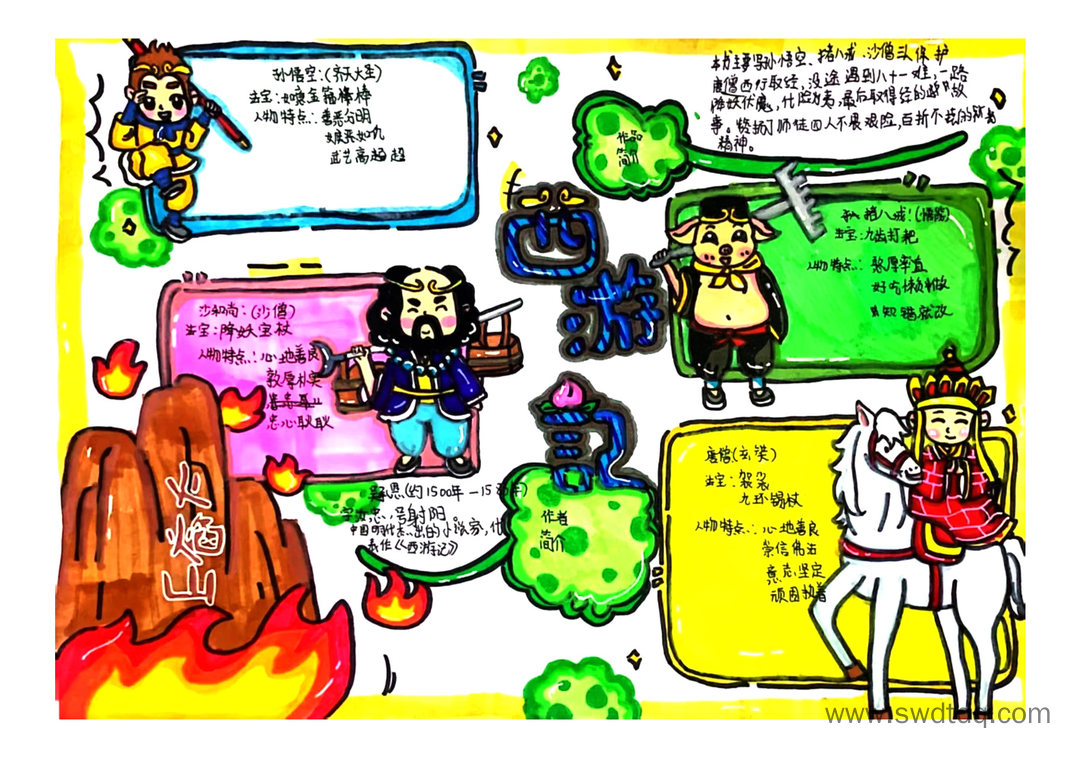 孙悟空:(齐天大圣)
法宝:如意金箍棒棒
人物特点:善恶分明
嫉恶如仇
武艺高超超
作品
简介
本书主要写孙悟空、猪八戒、沙僧 保护
唐僧西行取经,没途遇到八十一难,一路
降妖伏魔,化险为夷,最后取得经的故
事。 师徒四人不畏艰险,百折不挠的
精神。
西游记
猪八戒!(悟能)
法宝:九齿钉耙
人物特点:憨厚率直
好吃懒做
知错就改
沙和尚:(沙僧)
法宝:降妖宝杖
人物特点:心地善良
敦厚朴实
忠心耿耿
作者
简介
恩(约1500年—1582年)
字汝忠,号射阳
中国明代杰出的小说家,代
表作《西游记》
唐僧(玄奘)
法宝:袈裟
九环锡杖
人物特点:心地善良
崇信佛法
意志坚定
顽固执着
www.swdtdq.com